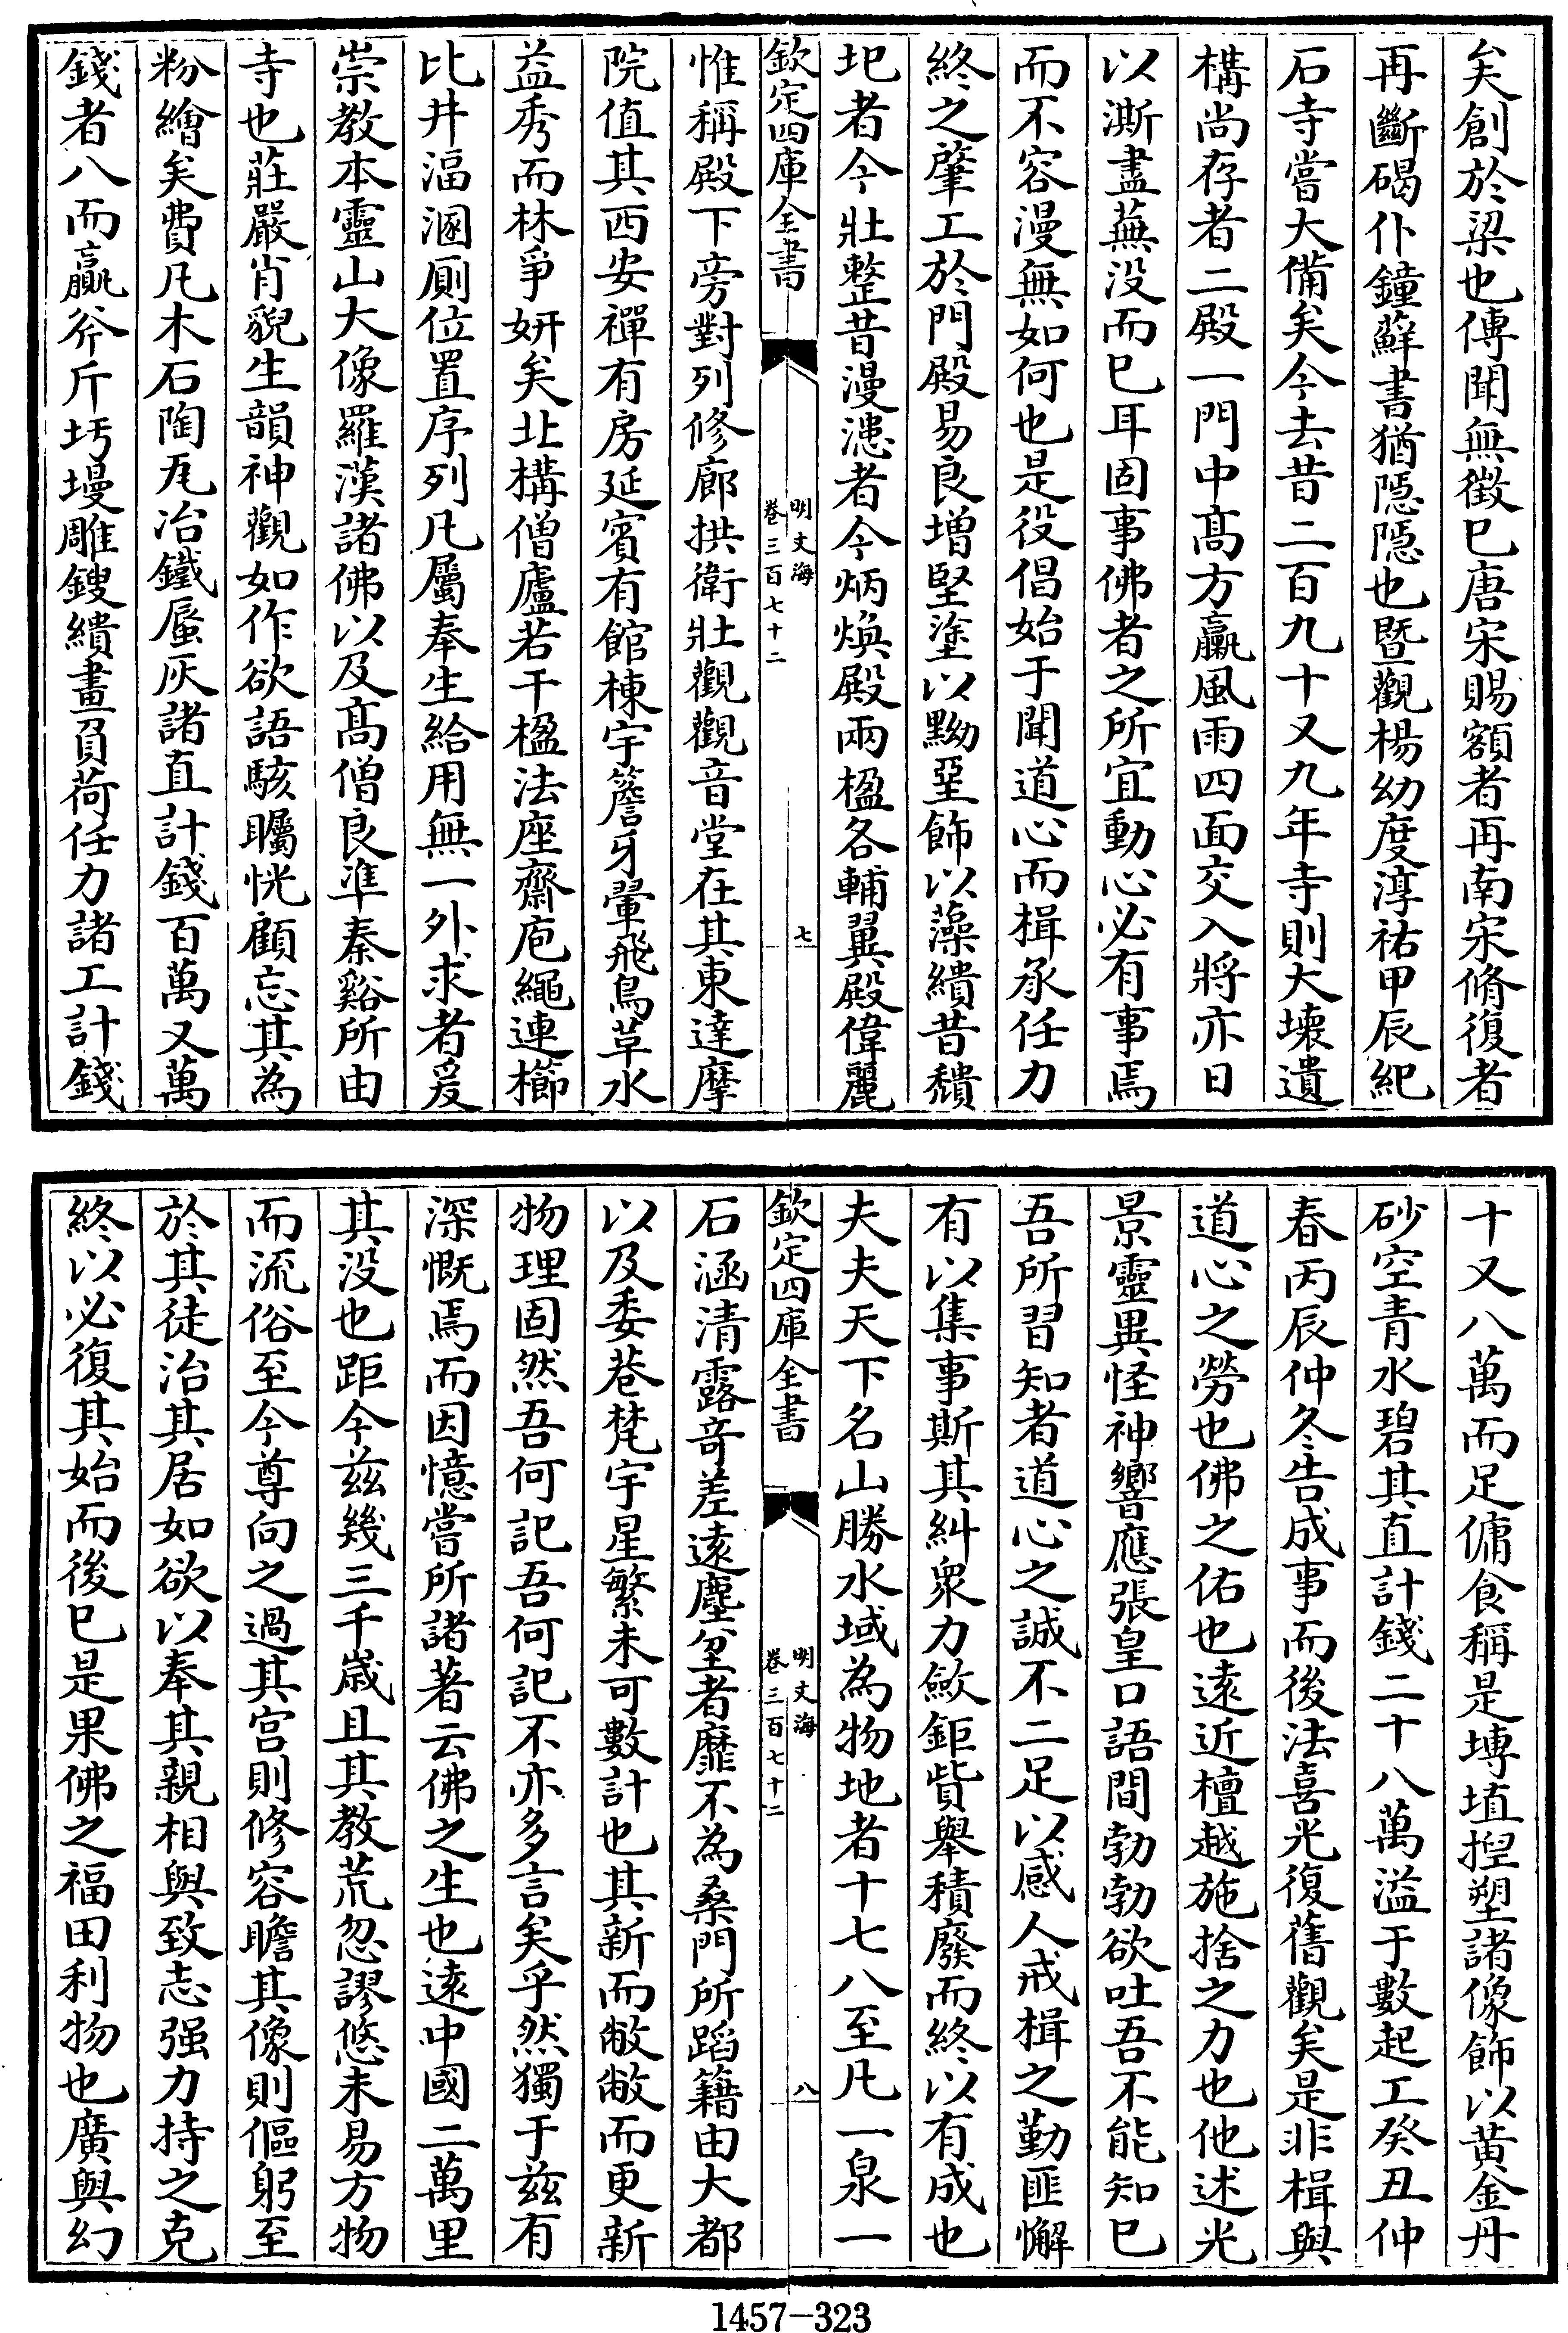 矣創於梁也傳聞無徵已唐宋賜額者再南宋脩復者
再斷碣仆鐘蘚書猶隱隱也暨觀楊幼度淳祐甲辰紀
石寺嘗大備矣今去昔二百九十又九年寺則大壞遺
構尚存者二殿一門中髙方贏風雨四面交入將亦日
以澌盡蕪没而已耳固事佛者之所宜動心必有事焉
而不容漫無如何也是役倡始于聞道心而楫承任力
終之肇工於門殿易良增堅塗以黝堊飾以藻繢昔頽
圯者今壯整昔漫漶者今炳煥殿兩楹各輔翼殿偉麗
欽定四庫全書
明文海
卷三百七十二
七
惟稱殿下旁對列修廊拱衛壯觀觀音堂在其東達摩
院值其西安禪有房延賓有館棟宇簷牙翬飛鳥革水
益秀而林爭妍矣北構僧廬若干楹法座齋庖繩連櫛
比井湢溷厠位置序列凡屬奉生給用無一外求者爰
崇教本靈山大像羅漢諸佛以及髙僧良準秦谿所由
寺也莊嚴肖貌生韻神觀如作欲語駭矚恍顧忘其為
粉繪矣費凡木石陶瓦冶鐵蜃灰諸直計錢百萬又萬
錢者八而贏斧斤圬墁雕鎪繢畫負荷任力諸工計錢
十又八萬而足傭食稱是塼埴揑塑諸像飾以黄金丹
砂空青水碧其直計錢二十八萬溢于數起工癸丑仲
春丙辰仲冬告成事而後法喜光復舊觀矣是非楫與
道心之勞也佛之佑也遠近檀越施捨之力也他述光
景靈異怪神響應張皇口語間勃勃欲吐吾不能知已
吾所習知者道心之誠不二足以感人戒楫之勤匪懈
有以集事斯其糾衆力歛鉅貲舉積廢而終以有成也
夫夫天下名山勝水域為物地者十七八至凡一泉一
欽定四庫全書
明文海
卷三百七十二
八
石涵清露奇差遠塵坌者靡不為桑門所蹈籍由大都
以及委巷梵宇星繁未可數計也其新而敝敝而更新
物理固然吾何記吾何記不亦多言矣乎然獨于兹有
深慨焉而因憶嘗所諸著云佛之生也遠中國二萬里
其没也距今兹幾三千歲且其教荒忽謬悠未易方物
而流俗至今尊向之過其宫則修容瞻其像則傴躬至
於其徒治其居如欲以奉其親相與致志强力持之克
終以必復其始而後已是果佛之福田利物也廣與幻
1457-323